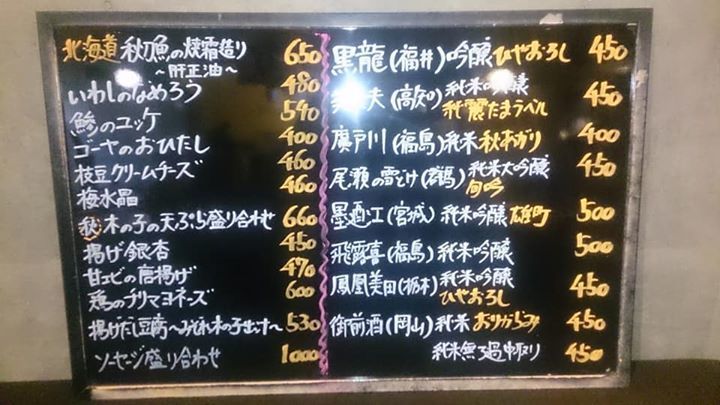 北海道 秋刀魚の焼霜造り 650
～肝正油～
いわしのなめろう 480
鯵のユッケ 540
ゴーヤのおひたし 400
枝豆クリームチーズ 460
梅水晶 460
秋 木の子の天ぷら盛り合わせ 660
揚げ銀杏 450
甘エビの唐揚げ 470
鶏のブリマヨネーズ 600
揚げだし豆腐～みぞれ木の子出汁～ 530
ソーセージ盛り合わせ 1000
黒龍(福井)吟醸 ひやおろし 450
夫(高知)純米吟醸 450
純麗たまラベル
廣戸川(福島)純米 秋あがり 400
尾瀬の雪どけ 純米大吟醸 450
旬吟
墨廼江(宮城)純米吟醸 雄町 500
飛露喜(福島)純米吟醸 500
鳳凰美田(栃木)純米吟醸 450
ひやおろし
御前酒(岡山)純米 おりがらみ 450
純米無ろ過中取り 450